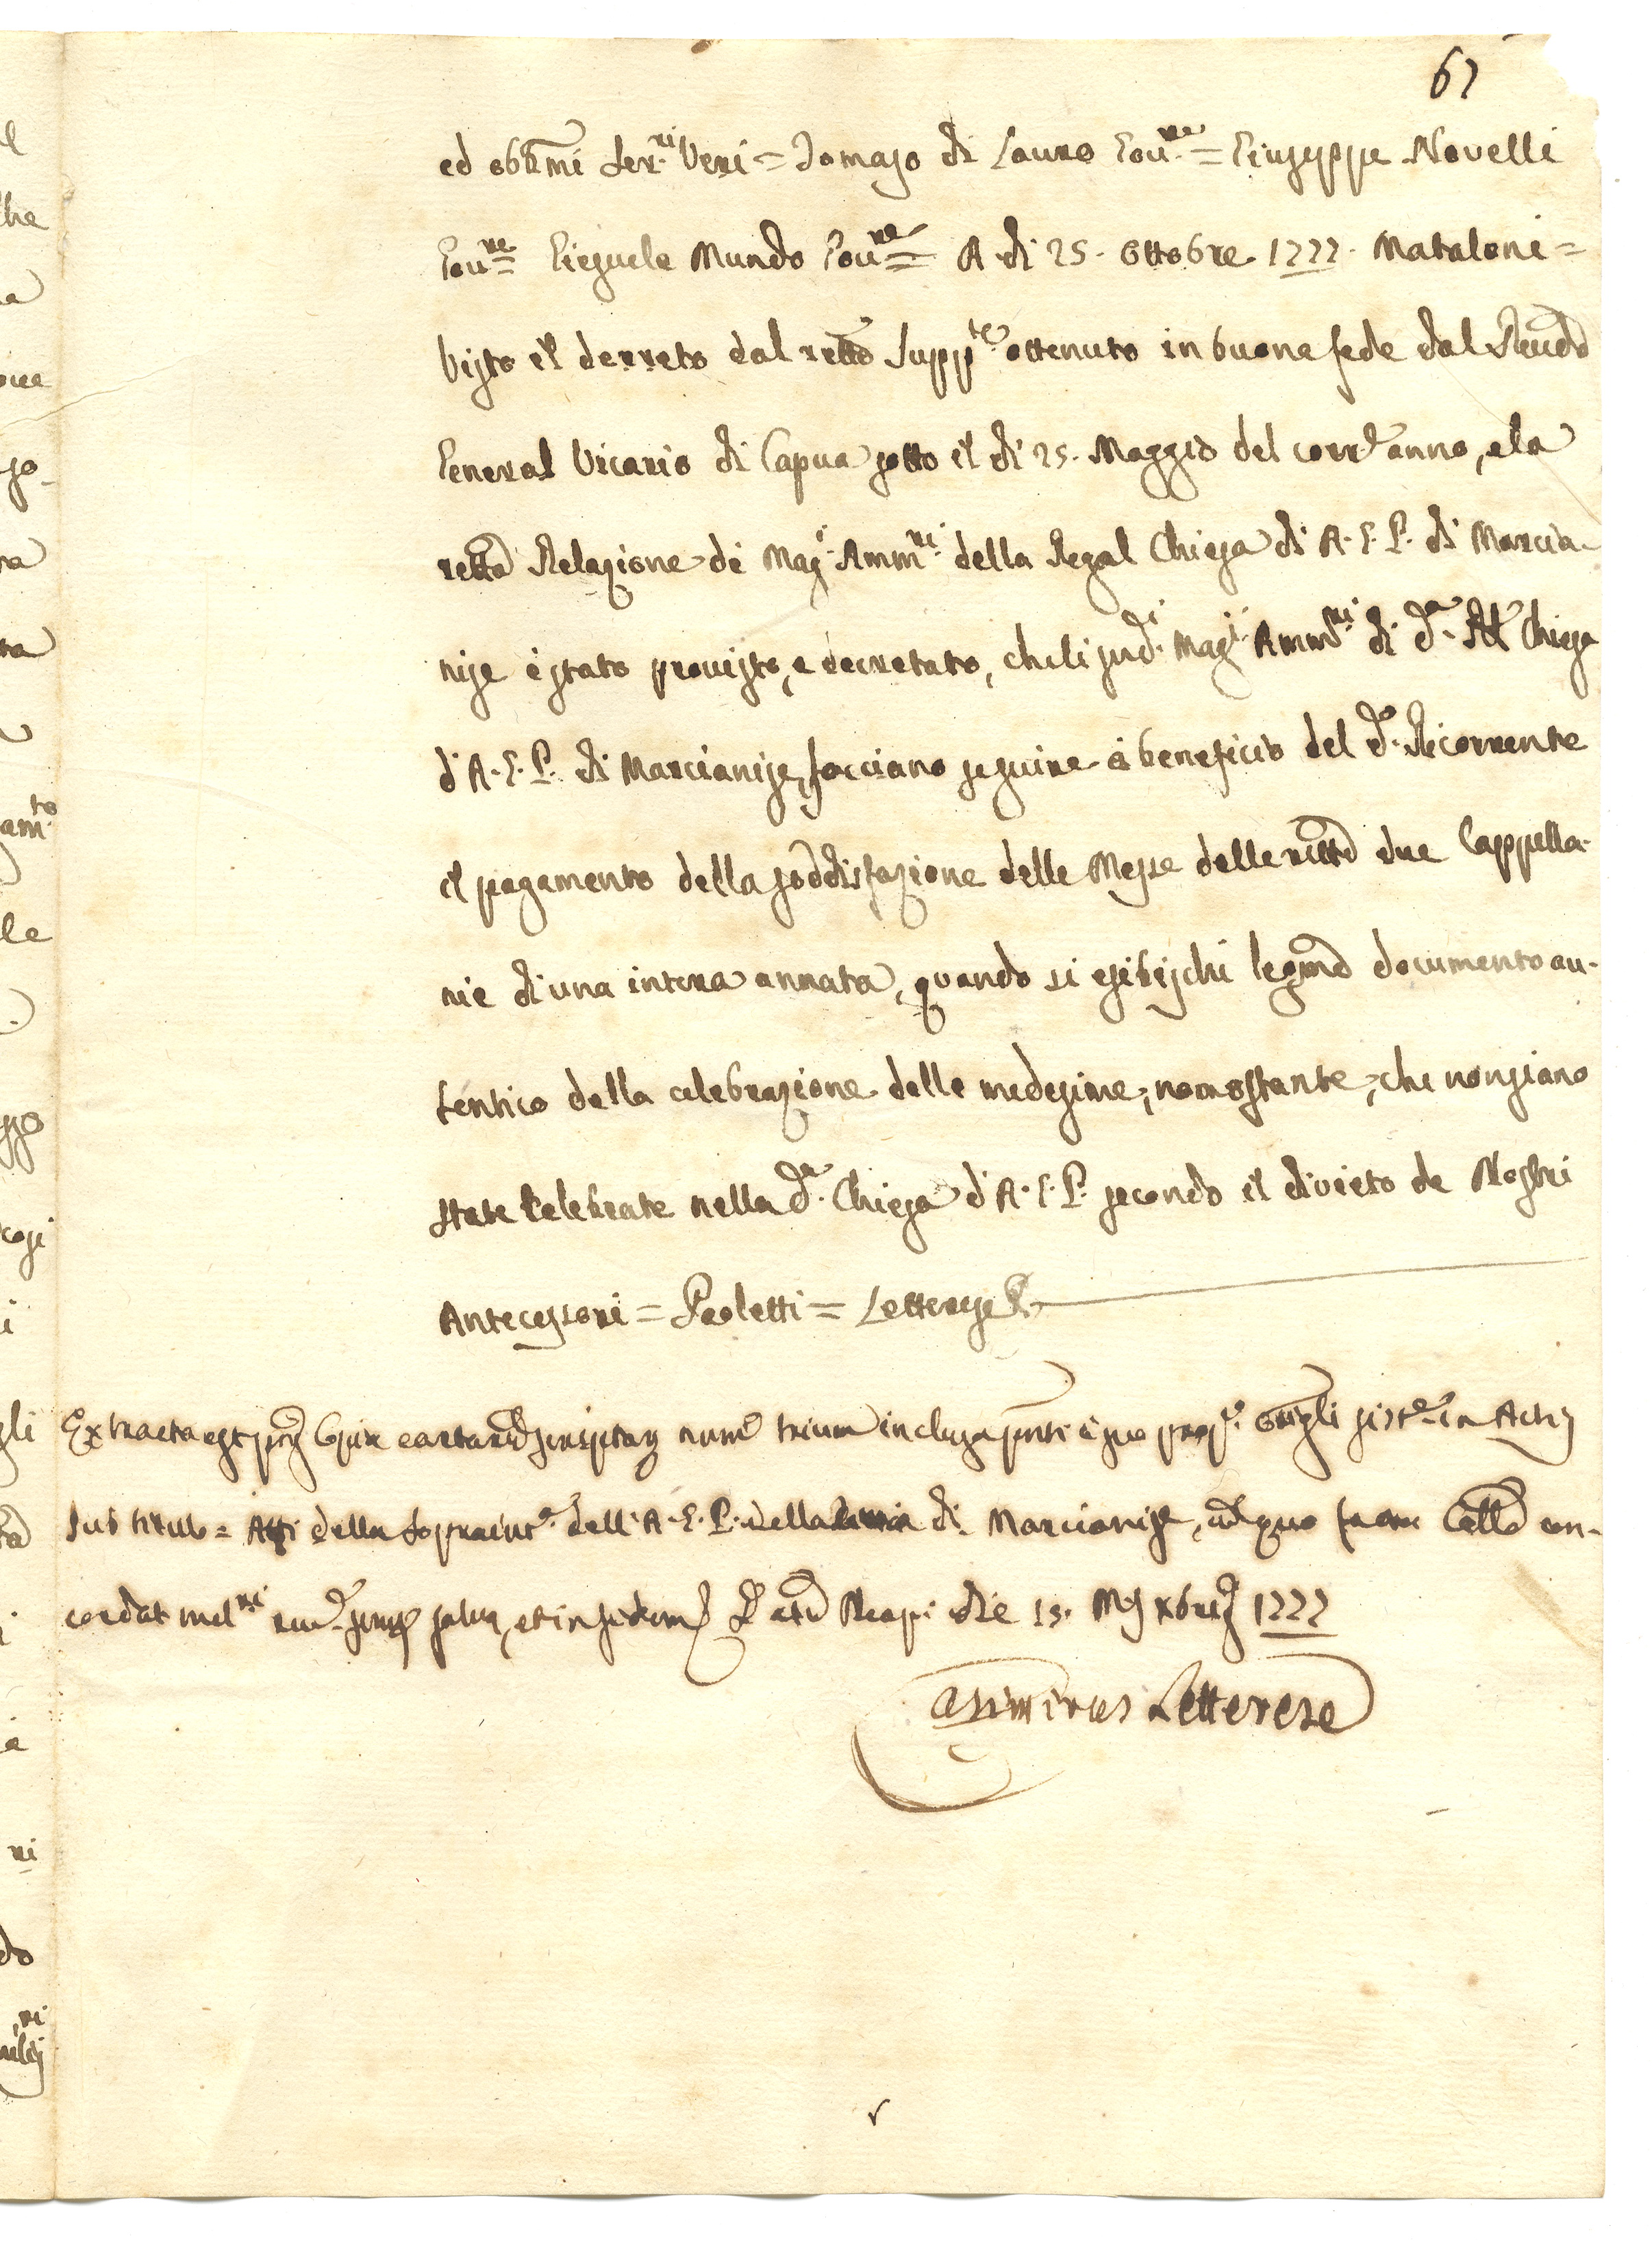 67
ed obb.mi Ser.ri Veri = Tomaso di Lauro Gov.re = Giuseppe Novelli
Gov.re = Giesuele Mundo Gov.re = A di 25. Ottobre 1777. Mataloni =
Visto il decreto dal retto Supp.te ottenuto in buona fede dal Revdo
General Vicario di Capua sotto il di 25. Maggio del corr.e anno, e la
retta Relazione de Mag.i Amm.ri della Regal Chiesa di A. G. P. di Marcia-
nise è stato provisto, e decretato, che li sud.i Mag.i Amm.ri di d.a Rl Chiesa
d'A. G. P. di Marcianise, facciano seguire à beneficio del d.o Ricorrente
il pagamento della soddisfazione delle Messe delle rette due Cappella-
nie di una intera annata, quando si esibischi legmo documento au-
tentico della celebrazione delle medesime, non ostante, che non siano
state celebrate nella d.a Chiesa d'A. G. P. secondo il divieto de Nostri
Antecessori = Paoletti = Letterese
Extracta est copia cartarum scriptarum num.o trium inclusa pnti è suo prop.o orig.li sist.e in Actis
sub titulo = Atti della Sopraint.a dell'A. G. P. della di Marcianise, cum quo facta Collne con-
cordat mel.ri semp. salva, et in fidem Datum Neap. die 15. Ms Xbris 1777
Letterese